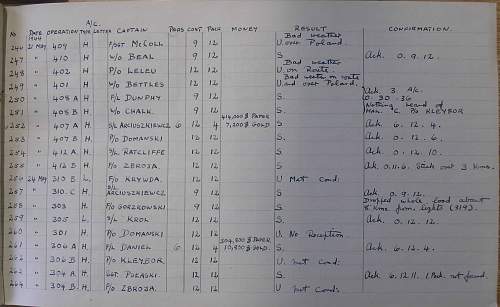 A/C.
No DATE 1944 OPERATION TYPE LETTER CAPTAIN PODS CONT PACK MONEY RESULT CONFIRMATION.
Bad weather
246 21 MAY 409 H. F/SGT McCOLL 9 12 U. over Poland.
247 " 410 H W/O BEAL 9 12 S. Ack. 0. 9. 12.
Bad weather
248 " 402 H P/O LELEU 12 12 U. en Route.
Bad weather en route
249 " 401 H W/O BETTLES 12 12 U. and over Poland.
Ack 3 A/c.
250 " 408 A H F/L DUNPHY 9 12 S. 0. 30. 36
Nothing heard of
251 " 408 B H W/O CHALK. 9 12 S. Hal. C. P/O KLEYBOR
414,000 $ PAPER
252 " 407 A H S/L ARCIUSZKIEWCZ 6 12 4 7,200 $ GOLD S. Ack 6. 12. 4.
253 " 407 B H P/O DOMANSKI 12 12 S. Ack. 0. 12. 6.
254 " 412 A H S/L RATCLIFFE 12 12 S. Ack. 0. 12. 10.
255 " 412 B H P/O ZBROJA. 12 12 S. Ack. 0. 11. 6. Stick out 3 Kms.
256 24 MAY 310 E L. F/O KRYWDA. 12 12 U Met Cond.
S/L
257 " 310. C H. ARCIUSZKIEWCZ 9 12 S. Ack. 0. 9. 12.
Dropped whole load about
258 " 303. H. F/O GORZKOWSKI 9 12 S. Kms from lights (319).
259 " 305 L S/L KROL 12 12 S. Ack. 0. 12. 12.
260 " 301 H P/O DOMANSKI 12 12 U. No Reception
304,500 $ PAPER
261 " 306 A H F/L DANIEL 6 12 4 10,950 $ GOLD. S. Ack. 6. 12. 4.
262 " 306 B H P/O KLEYBOR 12 12 U. met cond.
263 " 304 A. H. SGT POLASKI. 12 12 S. Ack. 6. 12. 11. (1 Pack. not found.
264 " 304 B. H P/O ZBROJA. 12 12 U met Conds.